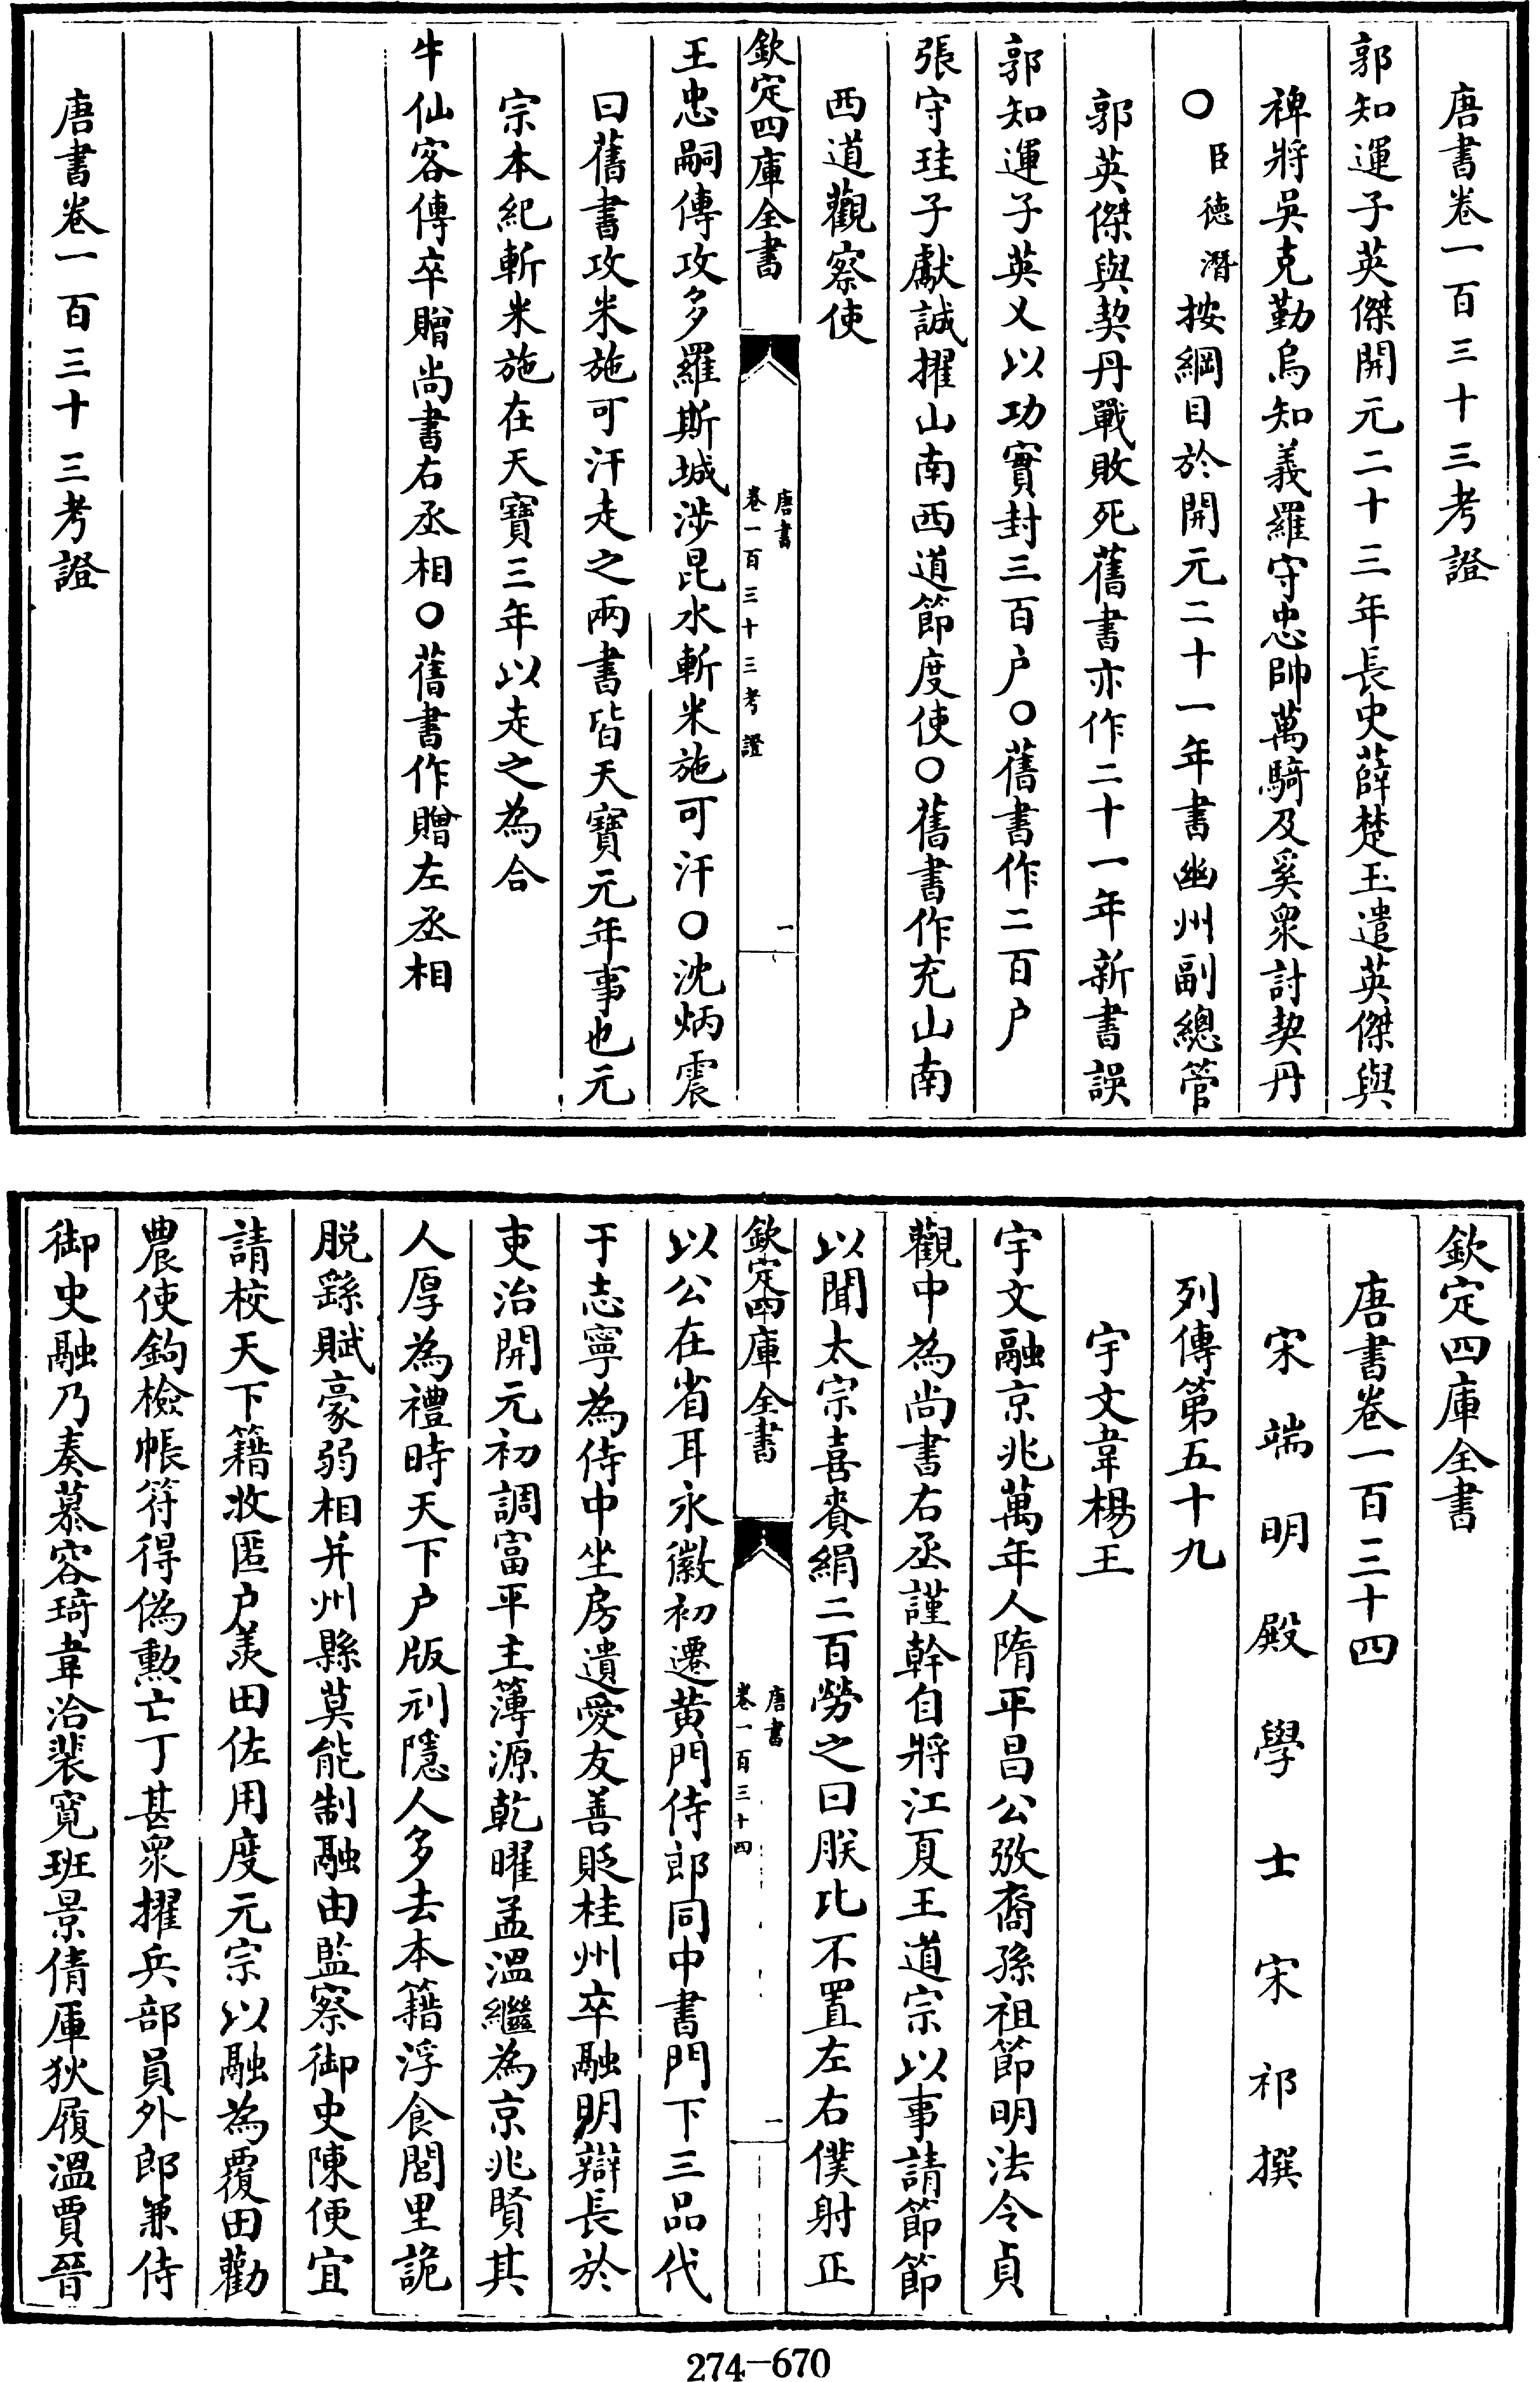 唐書卷一百三十三考證
郭知運子英傑開元二十三年長史薛楚玉遣英傑與
裨將吳克勤烏知義羅守忠帥萬騎及奚衆討契丹
〇臣德潛按綱目於開元二十一年書幽州副總管
郭英傑與契丹戰敗死舊書亦作二十一年新書誤
郭知運子英乂以功實封三百户〇舊書作二百户
張守珪子獻誠擢山南西道節度使〇舊書作充山南
西道觀察使
欽定四庫全書
唐書
卷一百三十三考證
一
王忠嗣傳攻多羅斯城涉昆水斬米施可汗〇沈炳震
曰舊書攻米施可汗走之兩書皆天寶元年事也元
宗本紀斬米施在天寶三年以走之為合
牛仙客傳卒贈尚書右丞相〇舊書作贈左丞相
唐書卷一百三十三考證
欽定四庫全書
唐書卷一百三十四
宋端明殿學士宋祁撰
列傳第五十九
宇文韋楊王
宇文融京兆萬年人隋平昌公弢裔孫祖節明法令貞
觀中為尚書右丞謹幹自將江夏王道宗以事請節節
以聞太宗喜賚絹二百勞之曰朕比不置左右僕射正
欽定四庫全書
唐書
卷一百三十四
一
以公在省耳永徽初遷黄門侍郎同中書門下三品代
于志寧為侍中坐房遺愛友善貶桂州卒融明辯長於
吏治開元初調富平主簿源乾曜孟溫繼為京兆賢其
人厚為禮時天下户版刓隱人多去本籍浮食閭里詭
脱繇賦豪弱相并州縣莫能制融由監察御史陳便宜
請校天下籍收匿户羨田佐用度元宗以融為覆田勸
農使鉤檢帳符得偽勲亡丁甚衆擢兵部員外郎兼侍
御史融乃奏慕容琦韋洽裴寛班景倩庫狄履溫賈晉
274-670